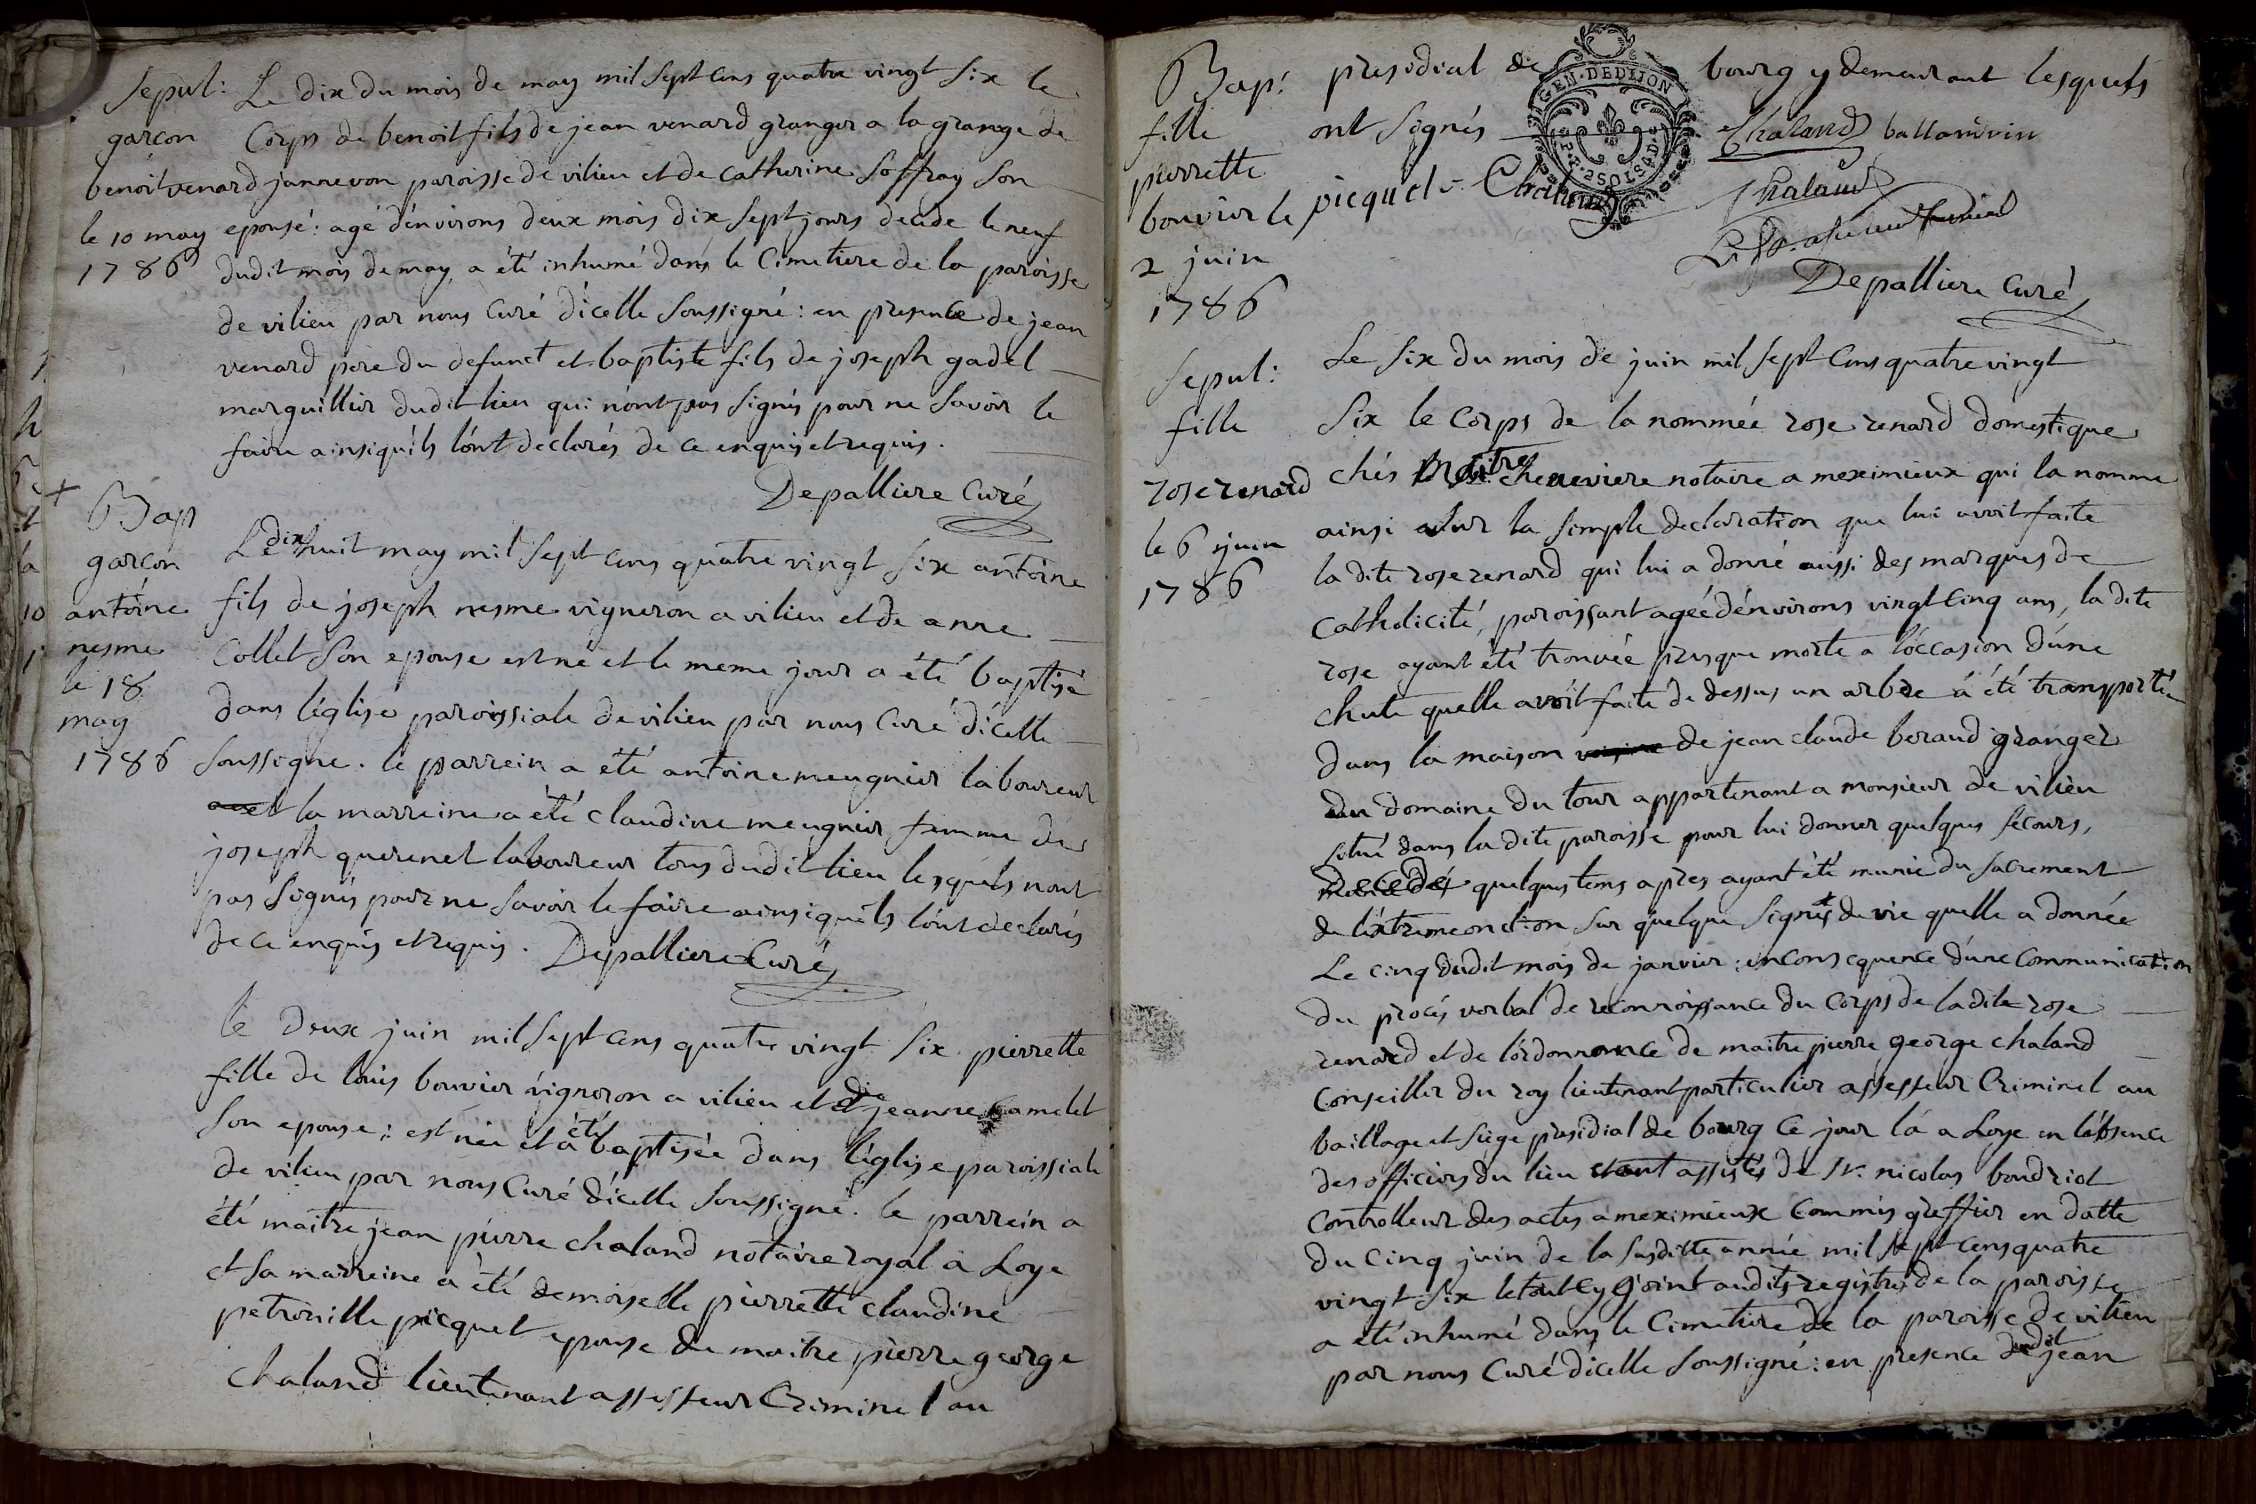 Sepul:
garçon
benoit venard
le 10 may
1786
Le dix du mois de may mil sept cens quatre vingt six le
Corps de benoit fils de jean venard granger a la grange de
jannevon paroisse de vilieu et de catherine soffray son
epousé: agé d'environs deux mois dix sept jours decede le neuf
dudit mois de may, a été inhumé dans le Cimetiere de la paroisse
de vilieu par nous Curé d'icelle soussigné: en presence de jean
venard pere du defunct et baptiste fils de joseph gadel
marguillier dudit lieu qui n'ont pas signés pour ne savoir le
faire ainsi qu'ils l'ont declarés de ce enquis et requis.
Depalliere Curé
Bap
garçon
antoine
nesme
le 18
may
1786
Le dix huit may mil sept cens quatre vingt six antoine
fils de joseph nesme vigneron a vilieu et de anne
Collet son epouse est né et le meme jour a été baptisé
dans l'église paroissiale de vilieu par nous Curé d'icelle
soussigné. le parrein a été antoine meugnier laboureur
et la marreine a été claudine meugnier femme de
joseph querenet laboureur tous dudit lieu lesquels n'ont
pas signés pour ne savoir le faire ainsi qu'ils l'ont declarés
de ce enquis et requis. Depalliere Curé
le deux juin mil sept cens quatre vingt six pierrette
fille de louis bouvier vigneron a vilieu et de jeanne camelet
son epouse: est née et a été baptisée dans l'église paroissiale
de vilieu par nous Curé d'icelle soussigné. le parrein a
été maitre jean pierre chaland notaire royal a Loye
et sa marreine a été demoiselle pierrette claudine
petronille picquet epouse de maitre pierre george
chaland lieutenant assesseur Criminel au
Bap:
fille
pierrette
bouvier le
2 juin
1786
presidial de bourg y demeurant lesquels
ont signés
GEN. DE DIJON
Chaland ballandrin
picquet Chaland
Chaland
Depalliere Curé
Sepul:
fille
rose renard
le 6 juin
1786
Le six du mois de juin mil sept Cens quatre vingt
six le Corps de la nommée rose renard domestique
chés maitre cheneviere notaire a meximieux qui la nomme
ainsi sur la simple declaration que lui avoit faite
la dite rose renard qui lui a donné aussi des marques de
Catholicité, paroissant agée d'environs vingt Cinq ans, la dite
rose ayant été trouvée presque morte a l'occasion d'une
chute quelle avoit faite de dessus un arbre a été transportée
dans la maison voisine de jean claude beraud granger
du domaine du tour appartenant a monsieur de vilieu
situé dans la dite paroisse pour lui donner quelques secours,
decedée quelques tems apres ayant été munie du sacrement
de l'extreme onction sur quelque signes de vie quelle a donnée
Le cinq dudit mois de janvier: en consequence d'une communication
du procés verbal de reconnoissance du Corps de ladite rose
renard et de l'ordonnance de maitre pierre george chaland
Conseiller du roy lieutenant particulier assesseur Criminel au
baillage et siege presidial de bourg Ce jour la a Loye en l'absence
des officiers du lieu assistés de sr. nicolas boudriot
Controlleur des actes a meximieux Commis greffier en datte
du cinq juin de la susditte année mil sept cens quatre
vingt six le tout Cy joint audits registres de la paroisse
a été inhumé dans le Cimetiere de la paroisse de vilieu
par nous Curé d'icelle soussigné: en presence dudit jean